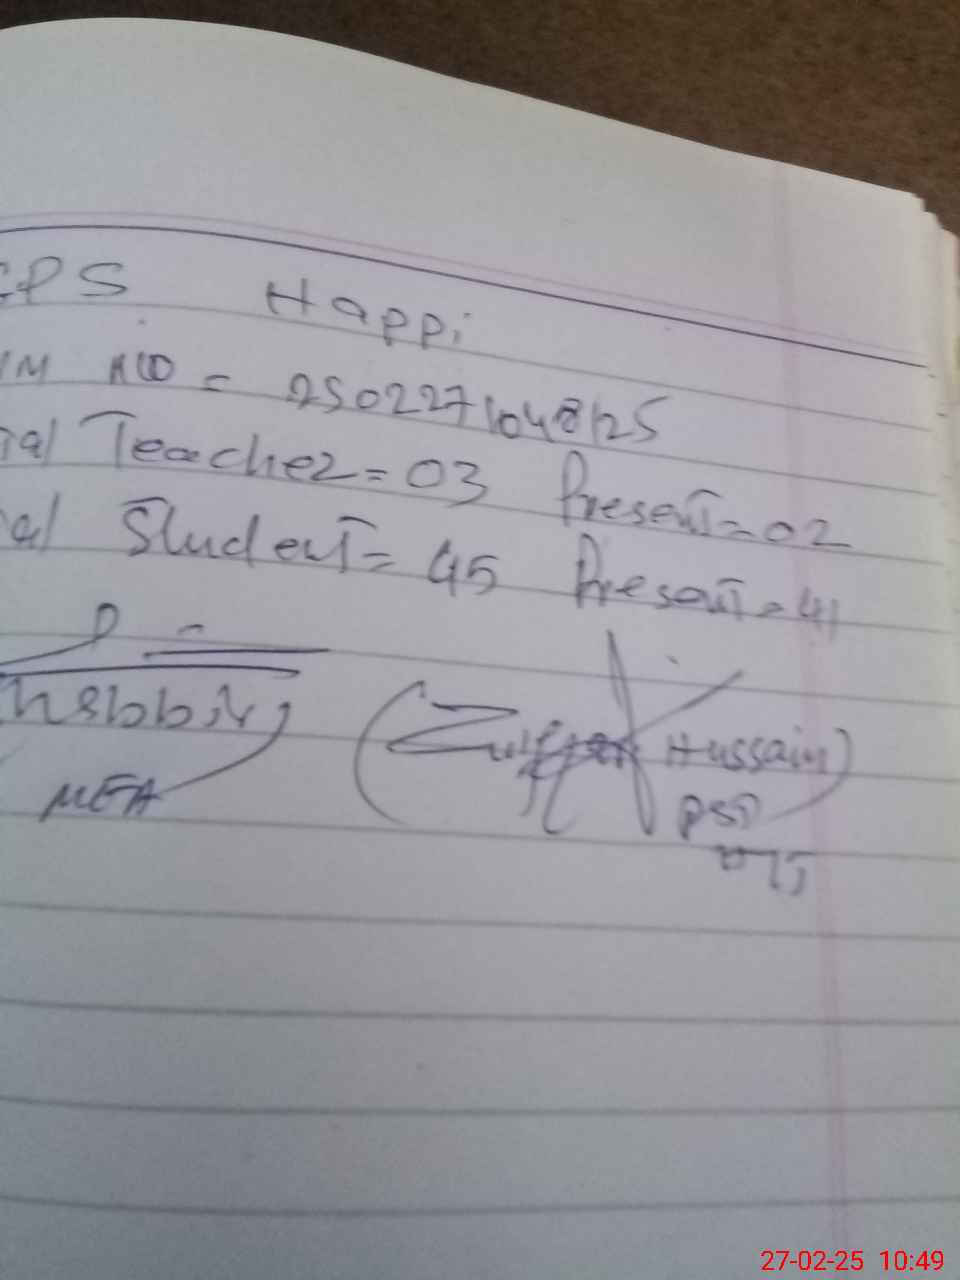 GPS Happi
IM NO = 2502271048125
Teacher = 03 Present = 02
Student = 45 Present = 41
(Zulfiqar Hussain)
MEA
PST
27-02-25 10:49